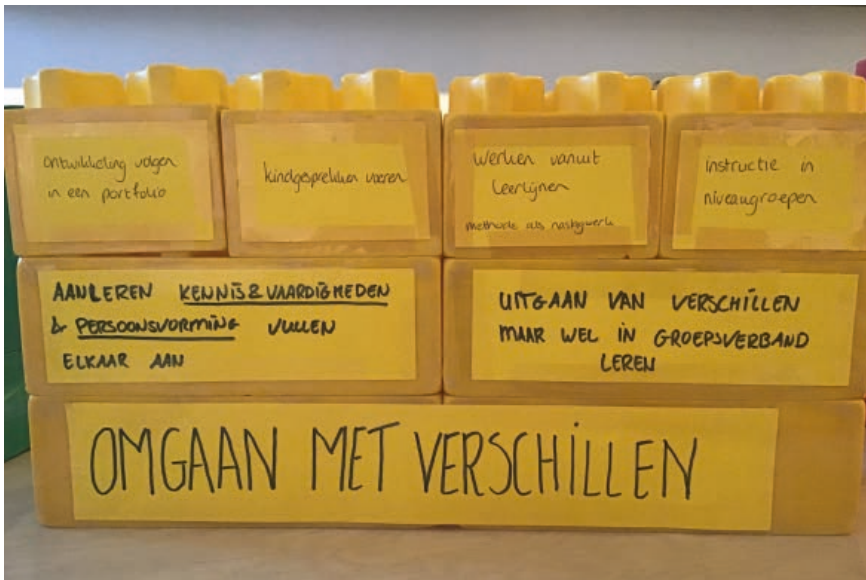 ontwikkeling volgen
in een portfolio
kindgesprekken voeren
werken vanuit
leerlijnen
methode als naslagwerk
instructie in
niveaugroepen
AANLEREN KENNIS & VAARDIGHEDEN
& PERSOONSVORMING VULLEN
ELKAAR AAN
UITGAAN VAN VERSCHILLEN
MAAR WEL IN GROEPSVERBAND
LEREN
OMGAAN MET VERSCHILLEN